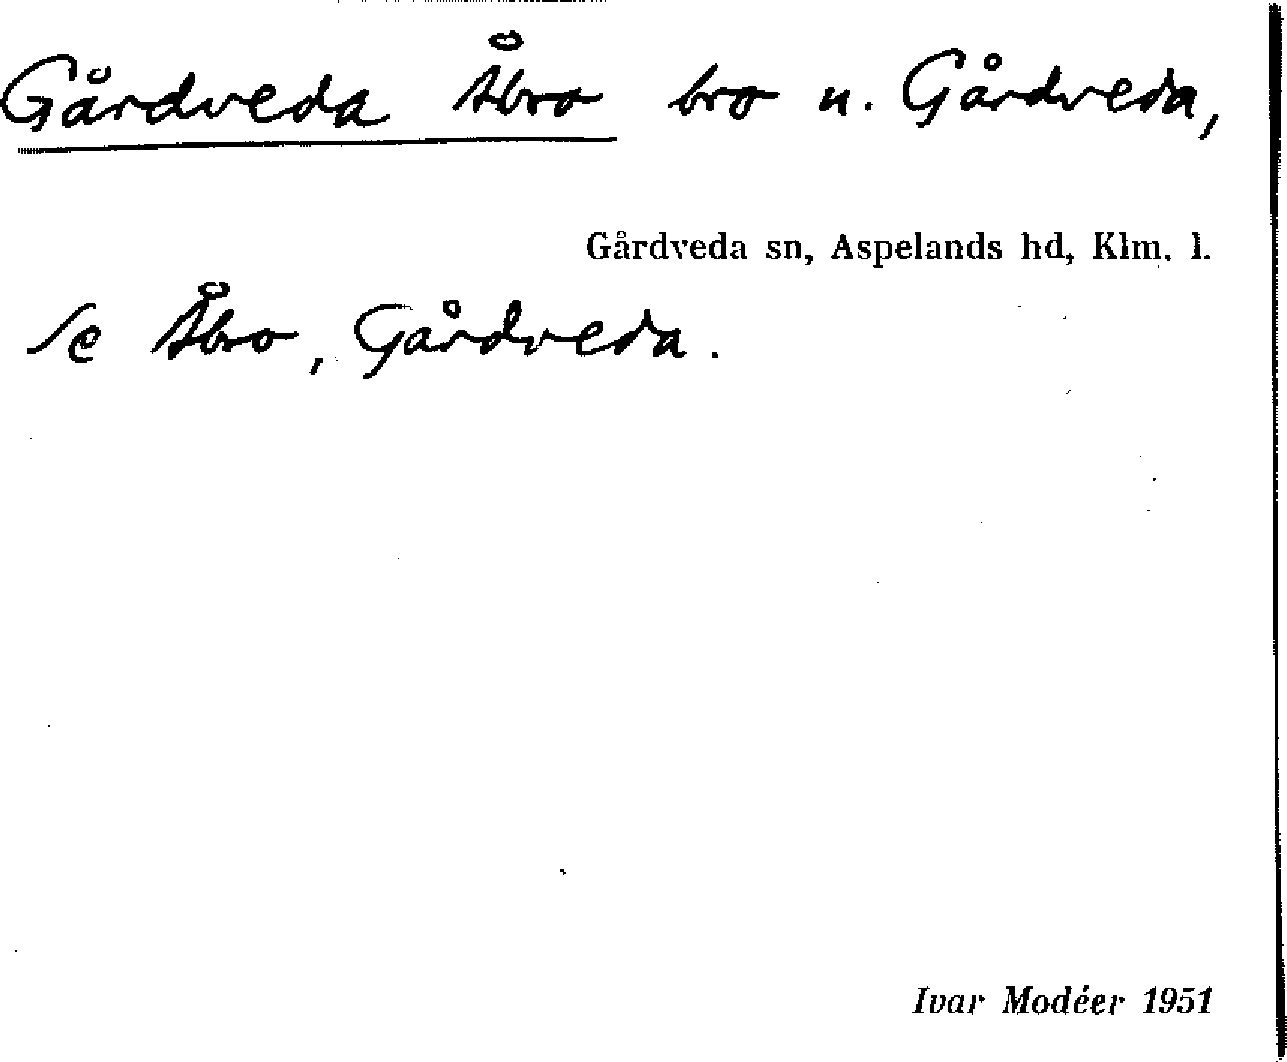 Gårdveda Åbro bro u. Gårdveda,
Gårdveda sn, Aspelands hd, Klm. l.
Se Åbro, Gårdveda.
Ivar Modéer 1951